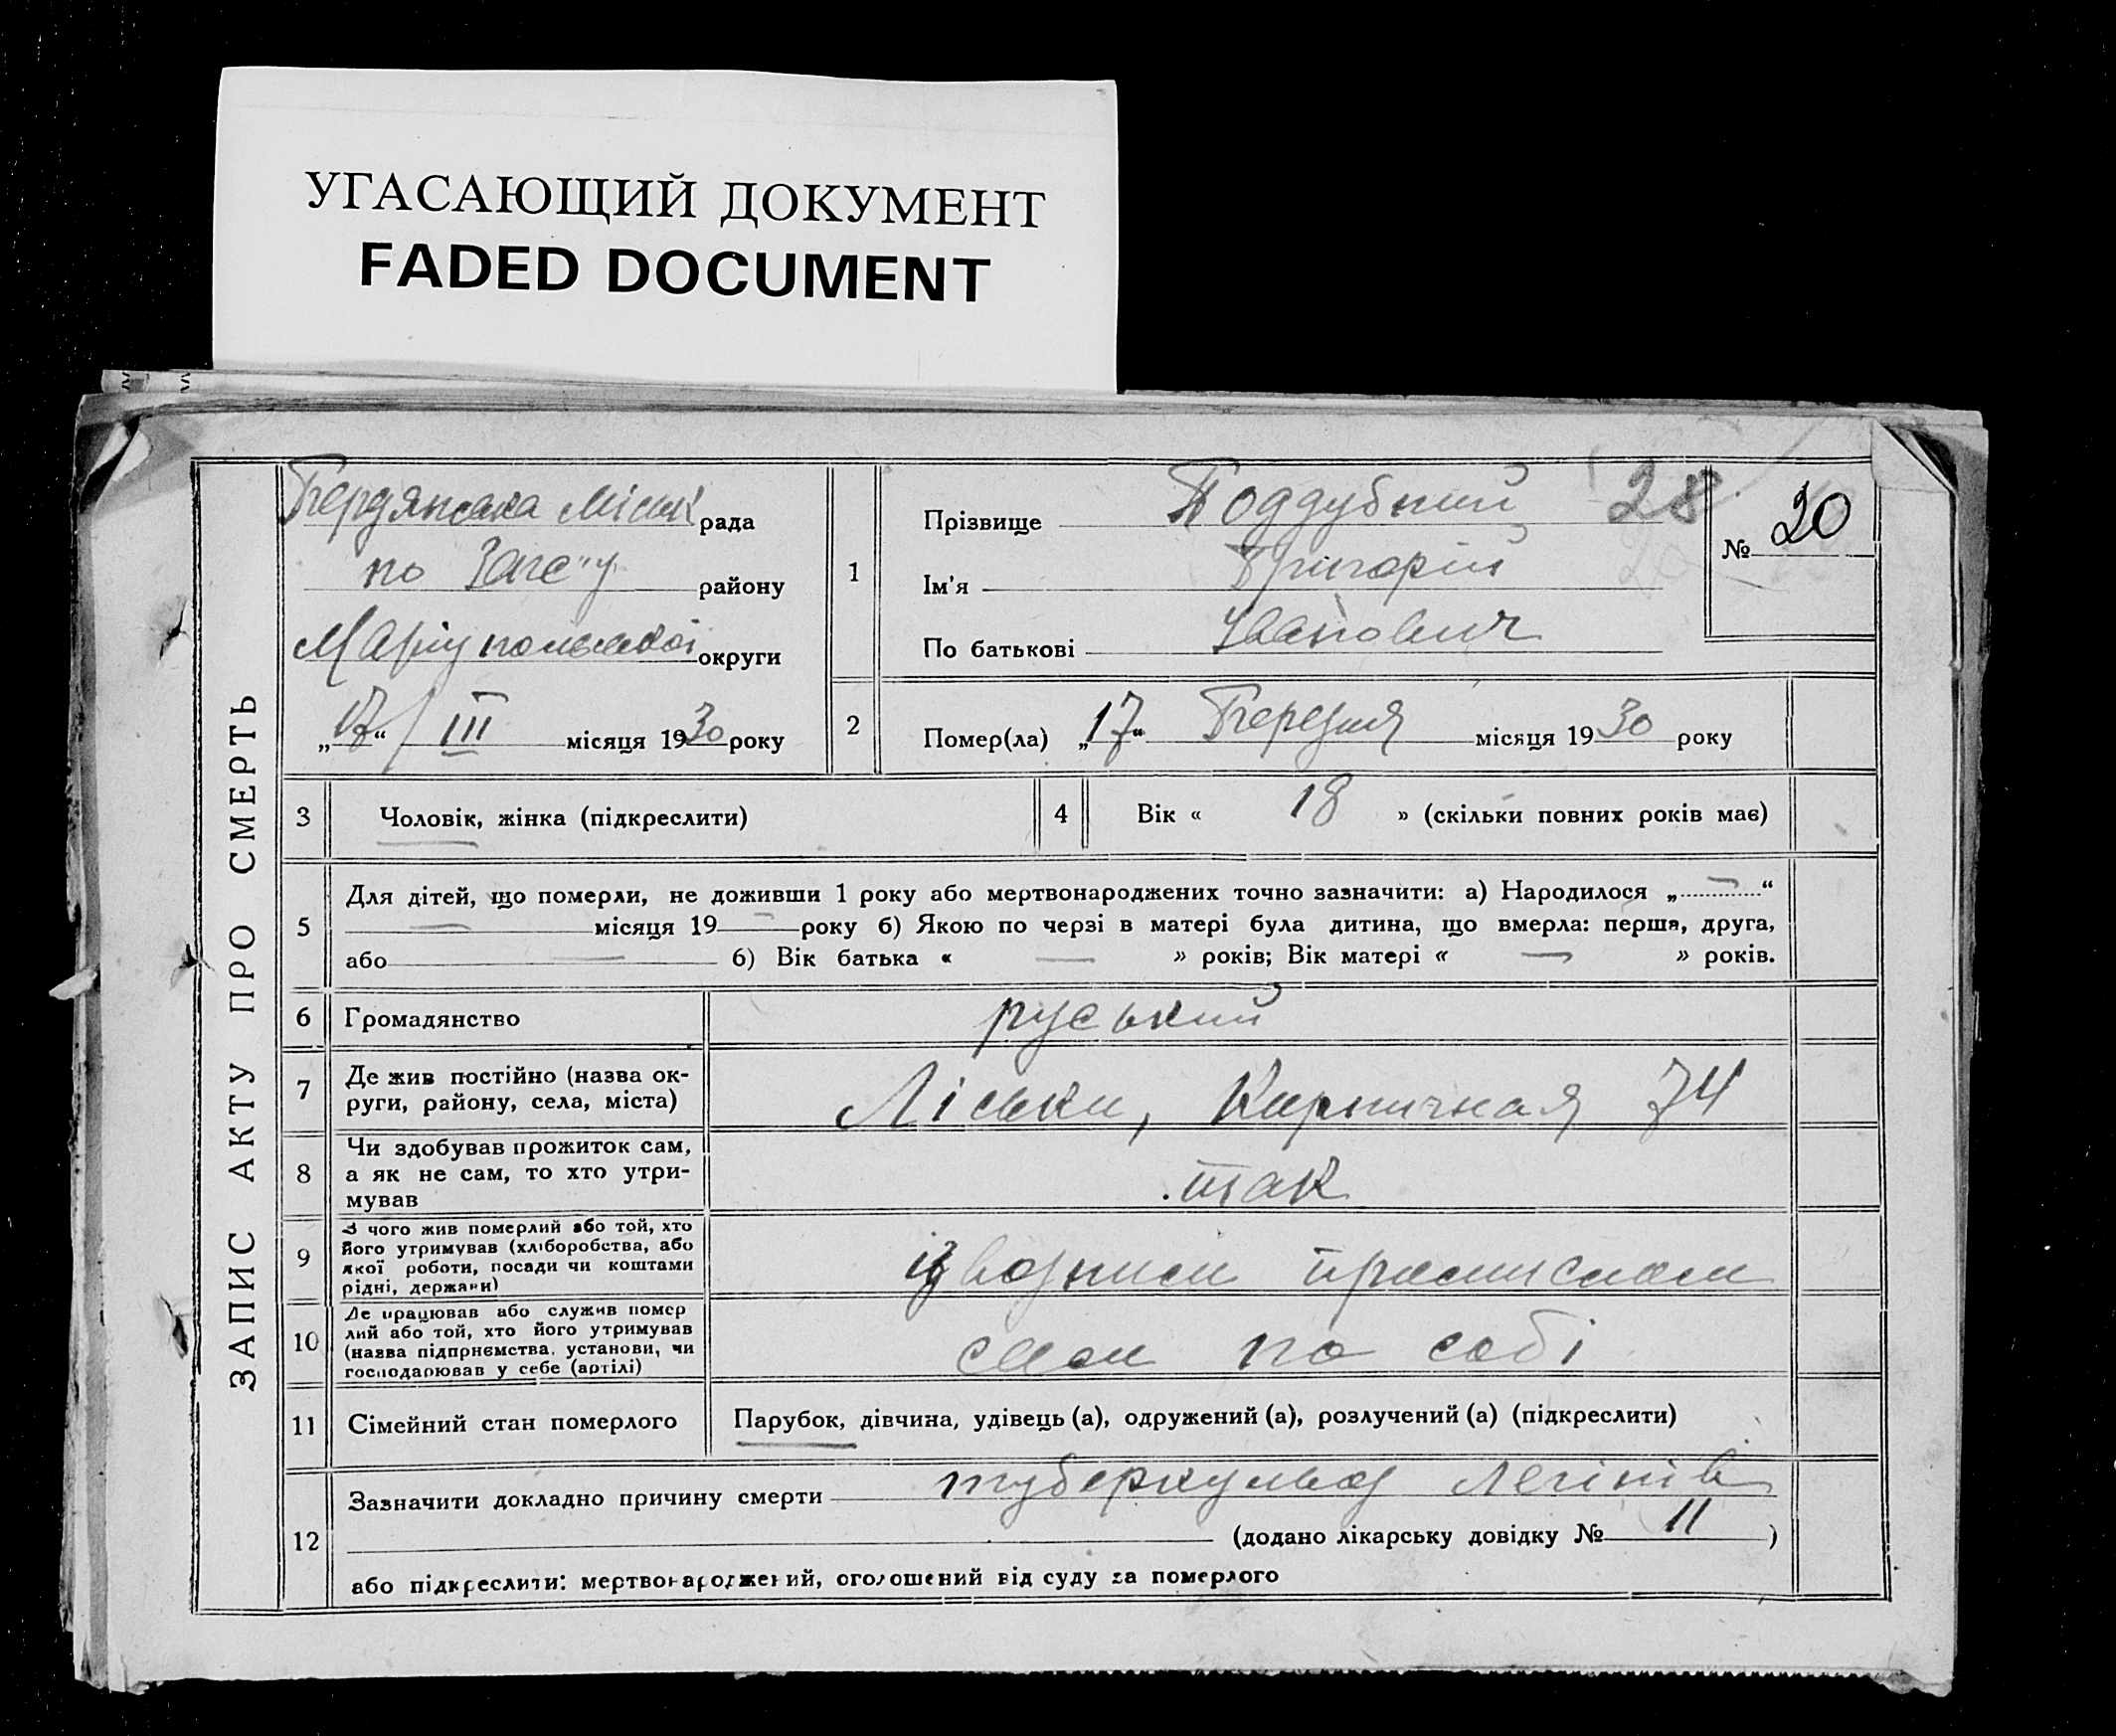 УГАСАЮЩИЙ ДОКУМЕНТ
FADED DOCUMENT
ЗАПИС АКТУ ПРО СМЕРТЬ
Бердянська Міськ рада
по Загс"у району
Маріупольської округи
„17“ / III місяця 1930 року
1
Прізвище Поддубний 28
Ім'я Григорій
По батькові Іванович
№ 20
2
Помер(ла) „17“ Березня місяця 1930 року
3 Чоловік, жінка (підкреслити)
4 Вік « 18 » (скільки повних років має)
5
Для дітей, що померли, не доживши 1 року або мертвонароджених точно зазначити: а) Народилося „—“
— місяця 19— року б) Якою по черзі в матері була дитина, що вмерла: перша, друга,
або — б) Вік батька « — » років; Вік матері « — » років.
6 Громадянство руський
7
Де жив постійно (назва ок-
руги, району, села, міста)
Ліськи, Кирпичная 74
8
Чи здобував прожиток сам,
а як не сам, то хто утри-
мував
так
9
З чого жив померлий або той, хто
його утримував (хліборобства, або
якої роботи, посади чи коштами
рідні, держави)
ізвозним промислом
10
Де працював або служив помер
лий або той, хто його утримував
(назва підприємства, установи, чи
господарював у себе (артілі)
сам по собі
11 Сімейний стан померлого
Парубок, дівчина, удівець (а), одружений (а), розлучений (а) (підкреслити)
12
Зазначити докладно причину смерти туберкульоз легінів
(додано лікарську довідку № 11 )
або підкреслити: мертвонароджений, оголошений від суду за померлого